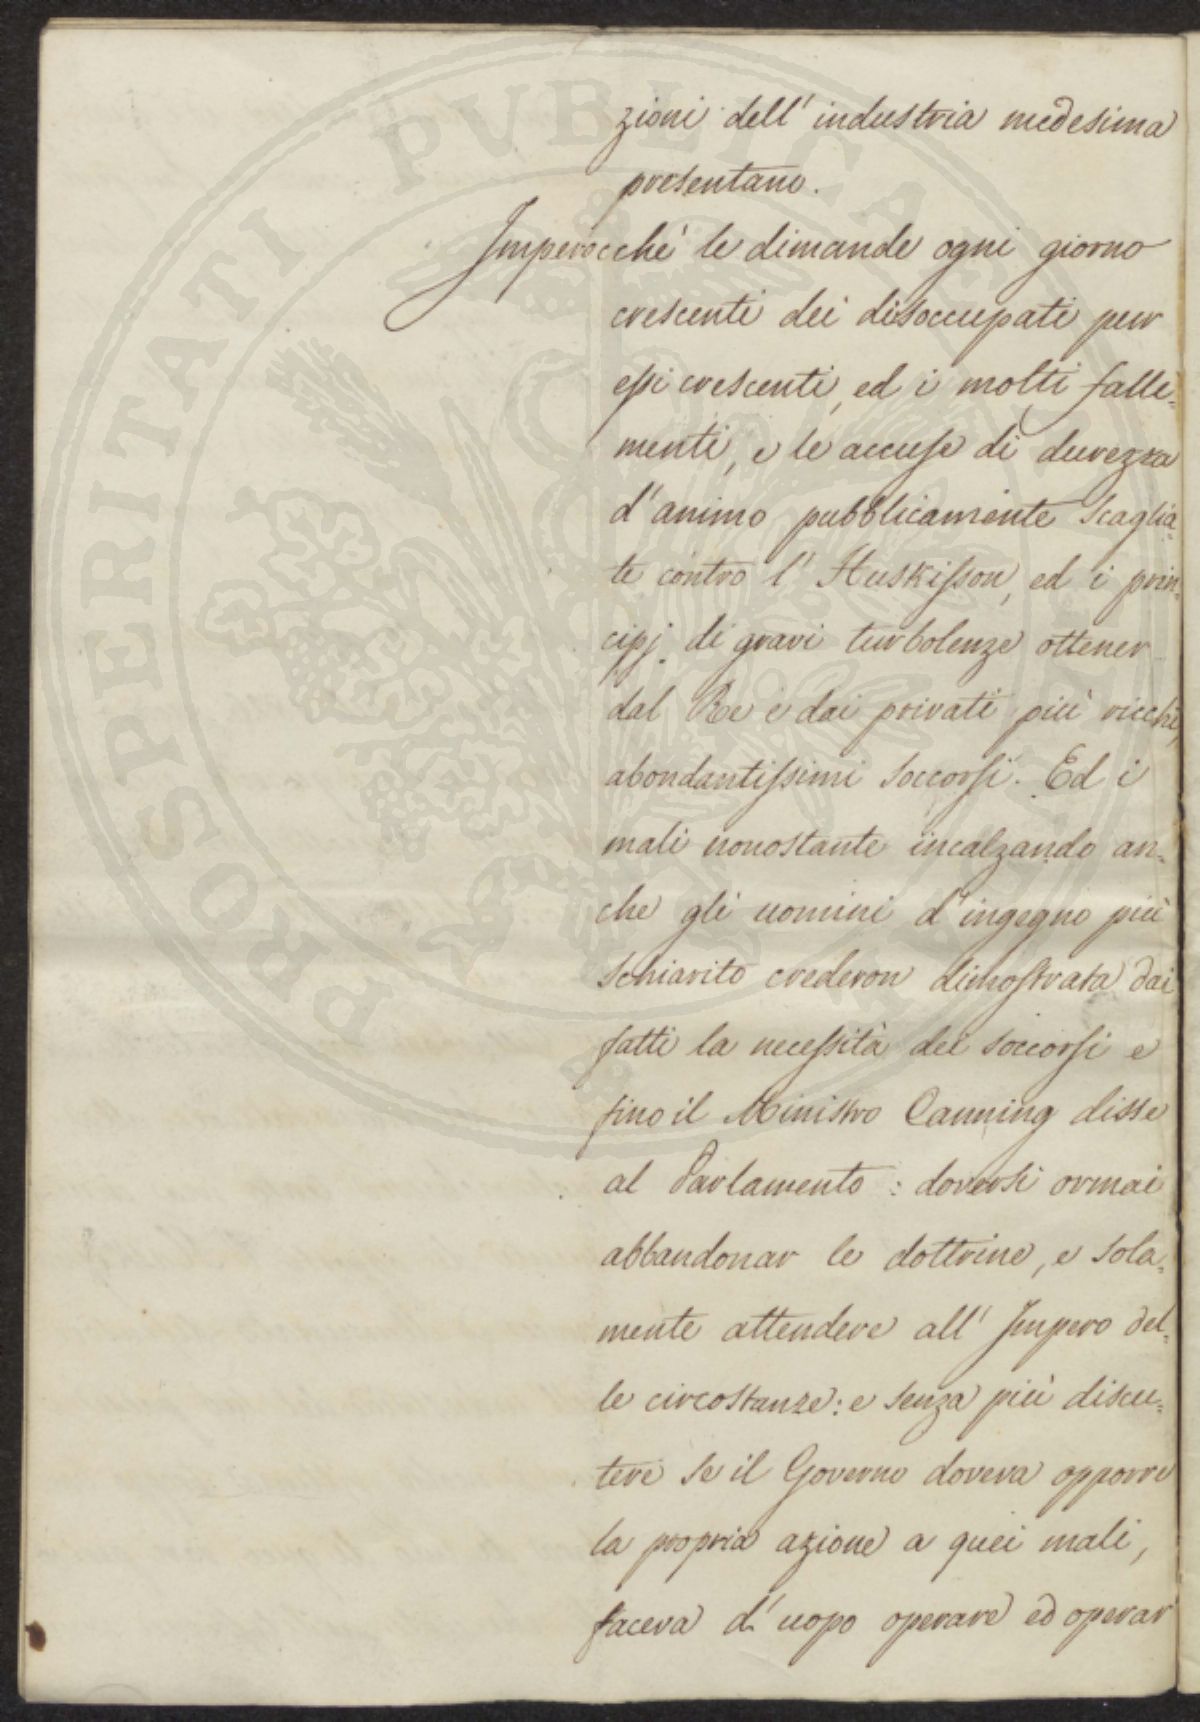 zioni dell' industria medesima
presentano.
Imperocchè le dimande ogni giorno
crescenti dei disoccupati pur
essi crescenti, ed i molti falli=
menti, e le accuse di durezza
d'animo pubblicamente scaglia=
te contro l' Huskisson, ed i prin=
cipj di gravi turbolenze ottener
dal Re e dai privati più ricchi,
abondantissimi soccorsi. Ed i
mali nonostante incalzando an=
che gli uomini d'ingegno più
schiarito crederon dimostrata dai
fatti la necessità dei soccorsi e
fino il Ministro Canning disse
al Parlamento : doversi ormai
abbandonar le dottrine, e sola=
mente attendere all' Impero del=
le circostanze: e senza più discu=
tere se il Governo doveva opporre
la propria azione a quei mali,
faceva d'uopo operare ed operar
PROSPERITATI PUBLICAE